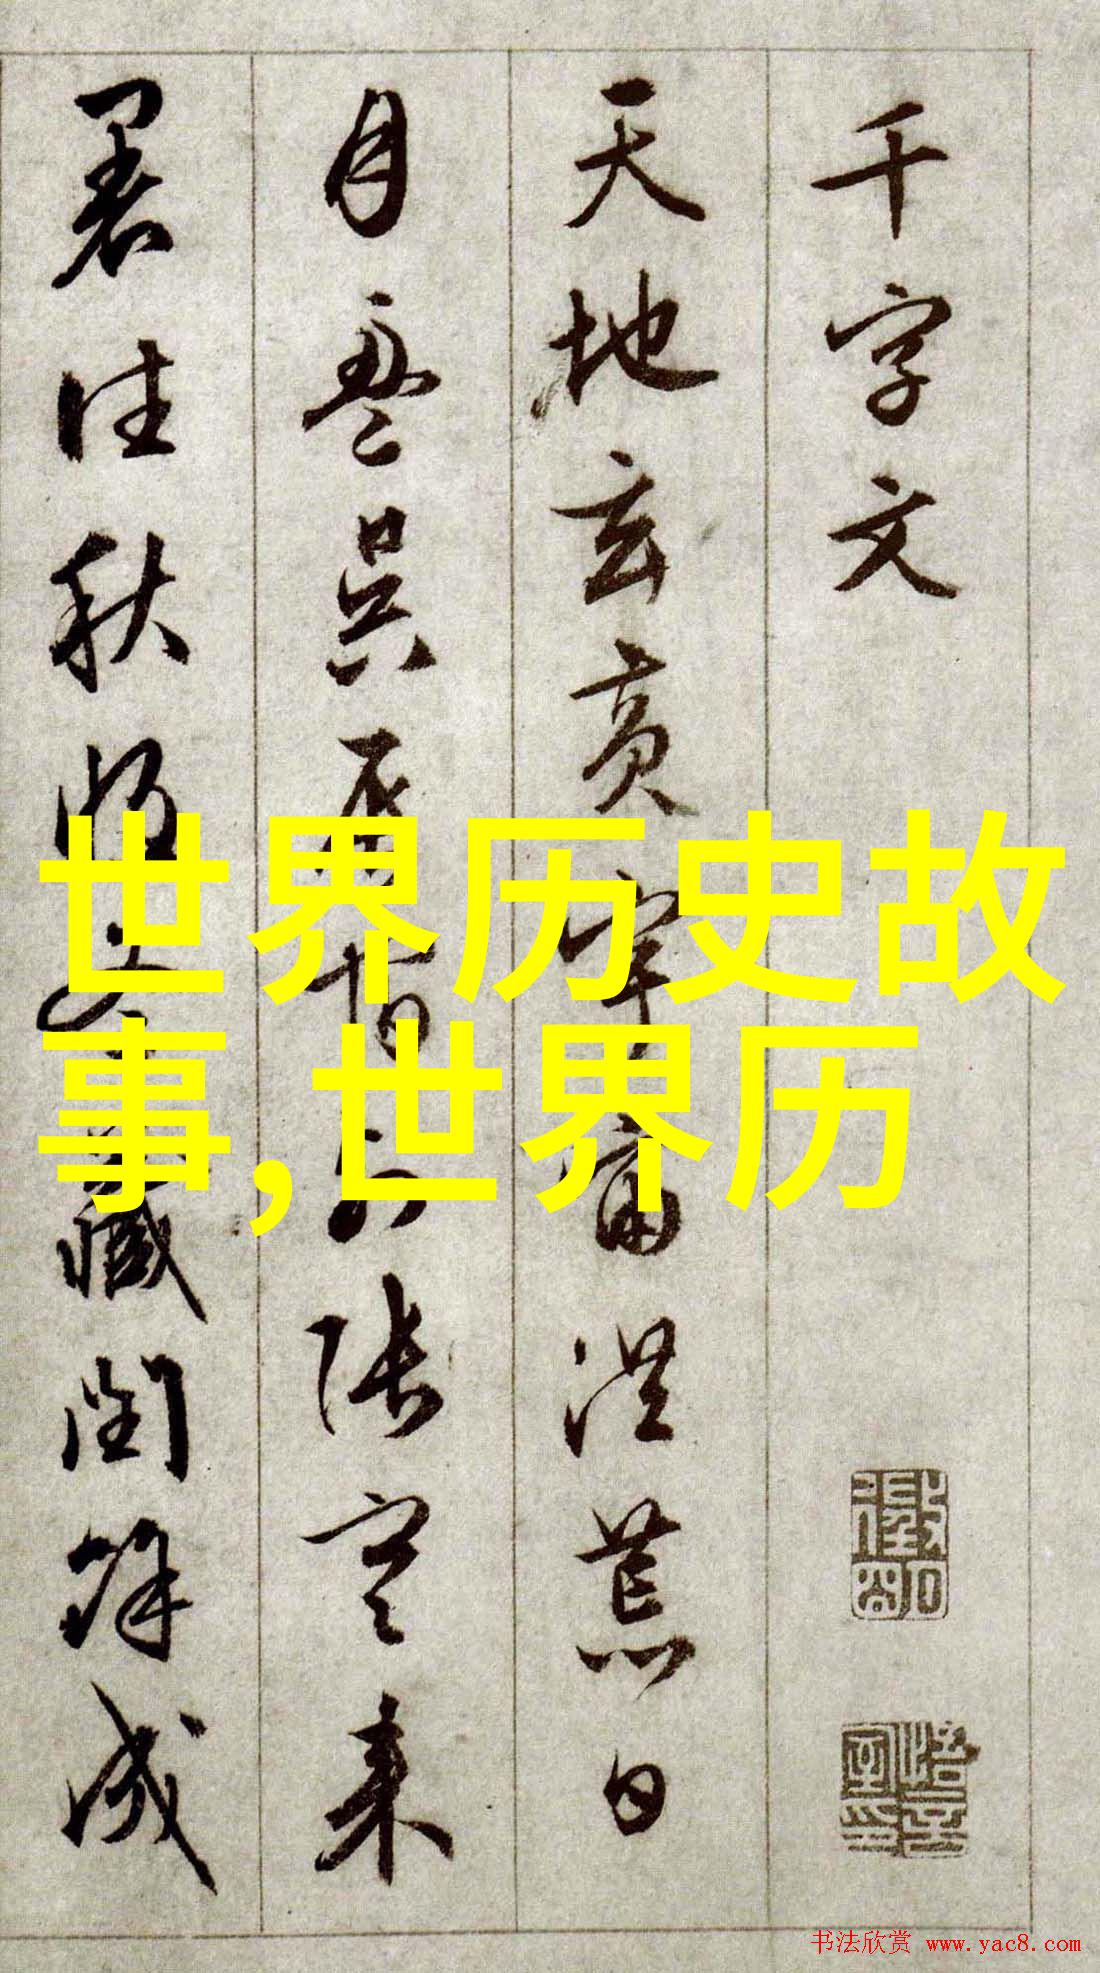 千字文
天地玄黄宇宙洪荒日
月盈昃辰宿列张寒来
暑往秋收冬藏闰余成
世界历史故
事,世界历
书法欣赏 www.yac8.com